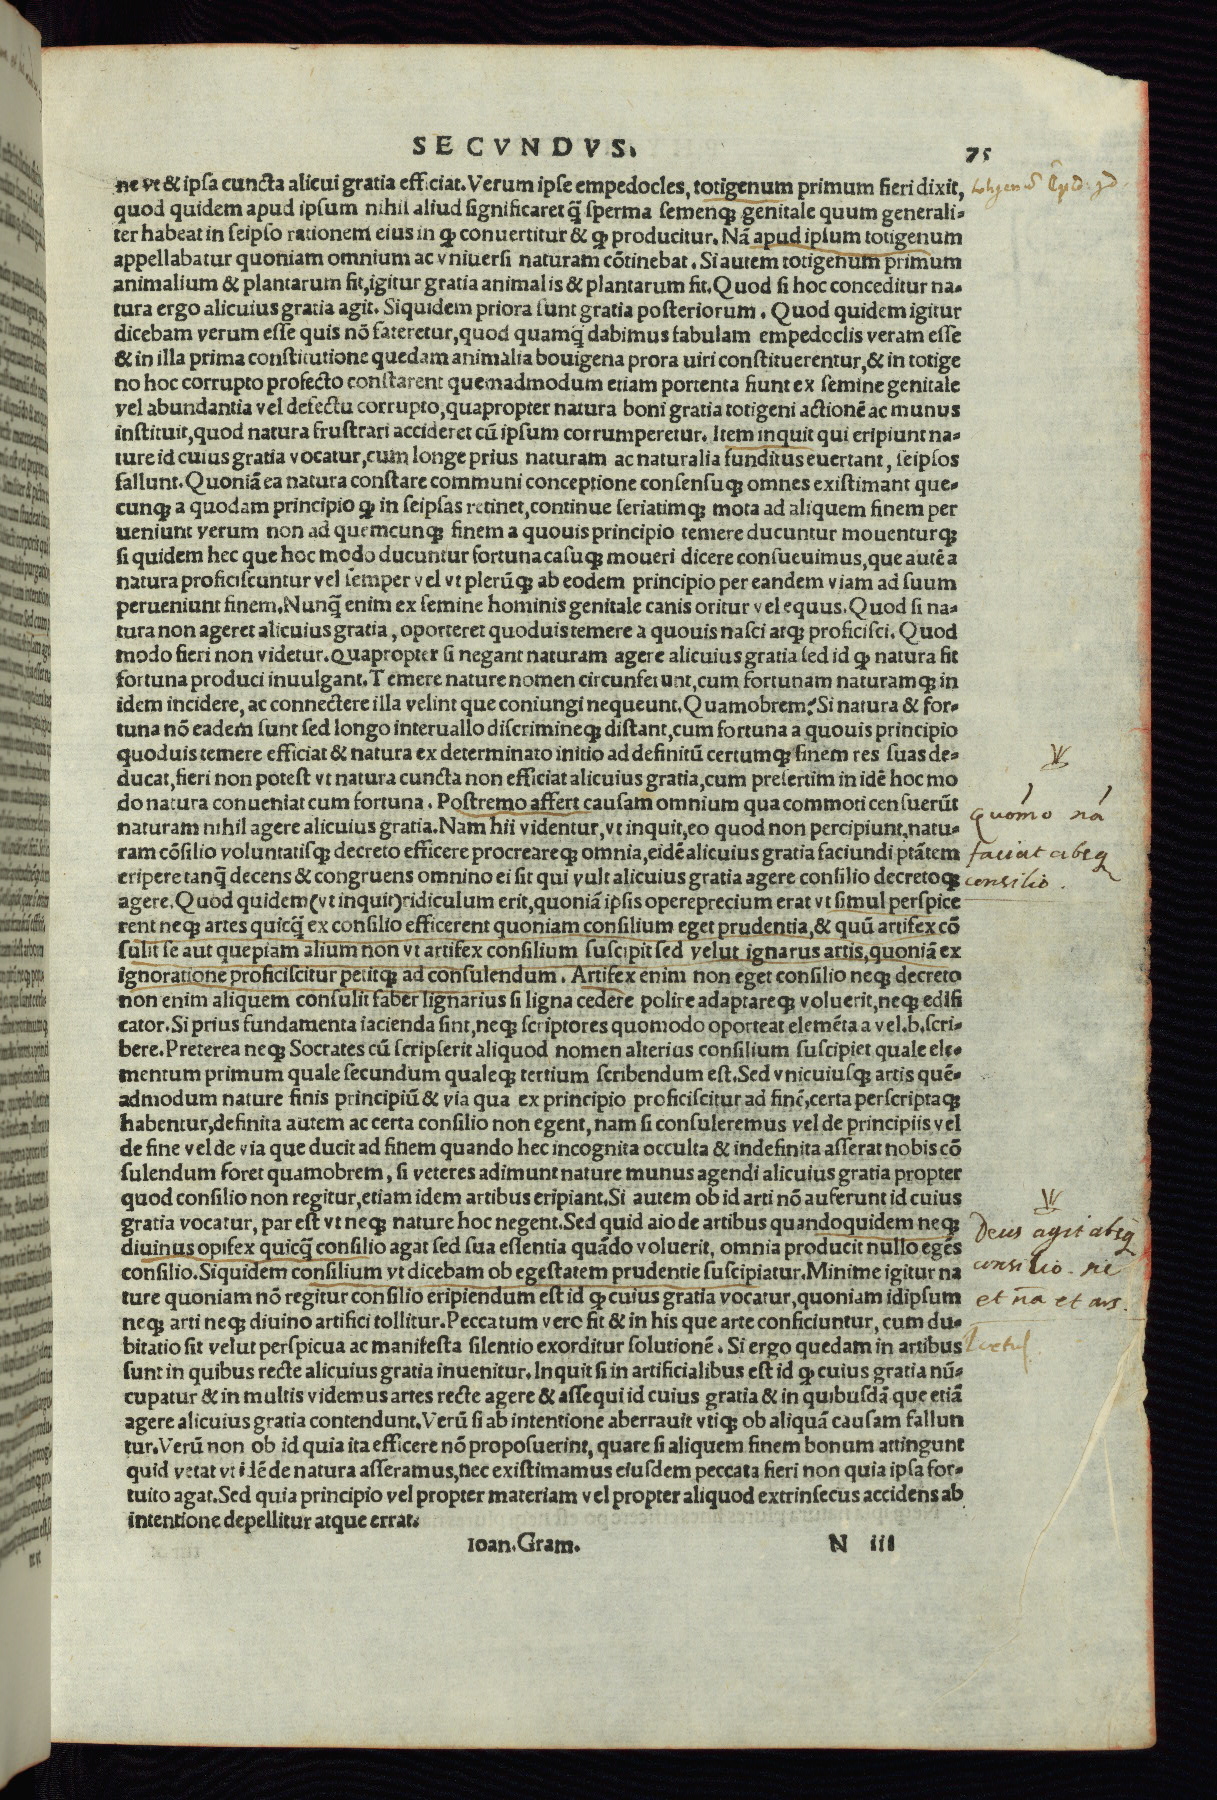 SECVNDVS.
75
ne vt & ipsa cuncta alicui gratia efficiat. Verum ipse empedocles, totigenum primum fieri dixit,
quod quidem apud ipsum nihil aliud significaret q̃ sperma semenqꝫ genitale quum generali-
ter habeat in seipso rationem eius in qꝫ conuertitur & qꝫ producitur. Nã apud ipsum totigenum
appellabatur quoniam omnium ac vniuersi naturam cõtinebat. Si autem totigenum primum
animalium & plantarum fit, igitur gratia animalis & plantarum fit. Quod si hoc conceditur na-
tura ergo alicuius gratia agit. Siquidem priora sunt gratia posteriorum. Quod quidem igitur
dicebam verum esse quis nõ fateretur, quod quamq̃ dabimus fabulam empedoclis veram esse
& in illa prima constitutione quedam animalia bouigena prora uiri constituerentur, & in totige
no hoc corrupto profecto constarent quemadmodum etiam portenta fiunt ex semine genitale
vel abundantia vel defectu corrupto, quapropter natura boni gratia totigeni actionẽ ac munus
instituit, quod natura frustrari accideret cũ ipsum corrumperetur. Item inquit qui eripiunt na-
ture id cuius gratia vocatur, cum longe prius naturam ac naturalia funditus euertant, seipsos
fallunt. Quoniã ea natura constare communi conceptione consensuqꝫ omnes existimant que-
cunqꝫ a quodam principio qꝫ in seipsas retinet, continue seriatimqꝫ mota ad aliquem finem per
ueniunt verum non ad quemcunqꝫ finem a quouis principio temere ducuntur mouenturqꝫ
si quidem hec que hoc modo ducuntur fortuna casuqꝫ moueri dicere consueuimus, que autẽ a
natura proficiscuntur vel semper vel vt plerũqꝫ ab eodem principio per eandem viam ad suum
perueniunt finem. Nunq̃ enim ex semine hominis genitale canis oritur vel equus. Quod si na-
tura non ageret alicuius gratia, oporteret quoduis temere a quouis nasci atqꝫ proficisci. Quod
modo fieri non videtur. Quapropter si negant naturam agere alicuius gratia sed id qꝫ natura fit
fortuna produci inuulgant. Temere nature nomen circunferunt, cum fortunam naturamqꝫ in
idem incidere, ac connectere illa velint que coniungi nequeunt. Quamobrem? Si natura & for-
tuna nõ eadem sunt sed longo interuallo discrimineqꝫ distant, cum fortuna a quouis principio
quoduis temere efficiat & natura ex determinato initio ad definitũ certumqꝫ finem res suas de-
ducat, fieri non potest vt natura cuncta non efficiat alicuius gratia, cum presertim in idẽ hoc mo
do natura conueniat cum fortuna. Postremo affert causam omnium qua commoti censuerũt
naturam nihil agere alicuius gratia. Nam hii videntur, vt inquit, eo quod non percipiunt, natu-
ram cõsilio voluntatisqꝫ decreto efficere procreareqꝫ omnia, eidẽ alicuius gratia faciundi ptãtem
eripere tanq̃ decens & congruens omnino ei sit qui vult alicuius gratia agere consilio decretoqꝫ
agere. Quod quidem (vt inquit) ridiculum erit, quoniã ipsis opereprecium erat vt simul perspice
rent neqꝫ artes quicq̃ ex consilio efficerent quoniam consilium eget prudentia, & quũ artifex cõ
sulit se aut quepiam alium non vt artifex consilium suscipit sed velut ignarus artis, quoniã ex
ignoratione proficiscitur petitqꝫ ad consulendum. Artifex enim non eget consilio neqꝫ decreto
non enim aliquem consulit faber lignarius si ligna cedere polire adaptareqꝫ voluerit, neqꝫ edifi
cator. Si prius fundamenta iacienda sint, neqꝫ scriptores quomodo oporteat elemẽta a vel. b. scri-
bere. Preterea neqꝫ Socrates cũ scripserit aliquod nomen alterius consilium suscipiet quale ele-
mentum primum quale secundum qualeqꝫ tertium scribendum est. Sed vnicuiusqꝫ artis quẽ-
admodum nature finis principiũ & via qua ex principio proficiscitur ad finẽ, certa perscriptaqꝫ
habentur, definita autem ac certa consilio non egent, nam si consuleremus vel de principiis vel
de fine vel de via que ducit ad finem quando hec incognita occulta & indefinita asserat nobis cõ
sulendum foret quamobrem, si veteres adimunt nature munus agendi alicuius gratia propter
quod consilio non regitur, etiam idem artibus eripiant. Si autem ob id arti nõ auferunt id cuius
gratia vocatur, par est vt neqꝫ nature hoc negent. Sed quid aio de artibus quandoquidem neqꝫ
diuinus opifex quicq̃ consilio agat sed sua essentia quãdo voluerit, omnia producit nullo egẽs
consilio. Siquidem consilium vt dicebam ob egestatem prudentie suscipiatur. Minime igitur na
ture quoniam nõ regitur consilio eripiendum est id qꝫ cuius gratia vocatur, quoniam id ipsum
neqꝫ arti neqꝫ diuino artifici tollitur. Peccatum vero fit & in his que arte conficiuntur, cum du-
bitatio sit velut perspicua ac manifesta silentio exorditur solutionẽ. Si ergo quedam in artibus
sunt in quibus recte alicuius gratia inuenitur. Inquit si in artificialibus est id qꝫ cuius gratia nũ-
cupatur & in multis videmus artes recte agere & assequi id cuius gratia & in quibusdã que etiã
agere alicuius gratia contendunt. Verũ si ab intentione aberrauit vtiqꝫ ob aliquã causam fallun
tur. Verũ non ob id quia ita efficere nõ proposuerint, quare si aliquem finem bonum attingunt
quid vetat vt idẽ de natura asseramus, nec existimamus eiusdem peccata fieri non quia ipsa for-
tuito agat. Sed quia principio vel propter materiam vel propter aliquod extrinsecus accidens ab
intentione depellitur atque errat.
Ioan. Gram. N iii
quõmo nã
faciat absqꝫ
consilio.
Deus agit absqꝫ
consilio. sic
et nã et ars.